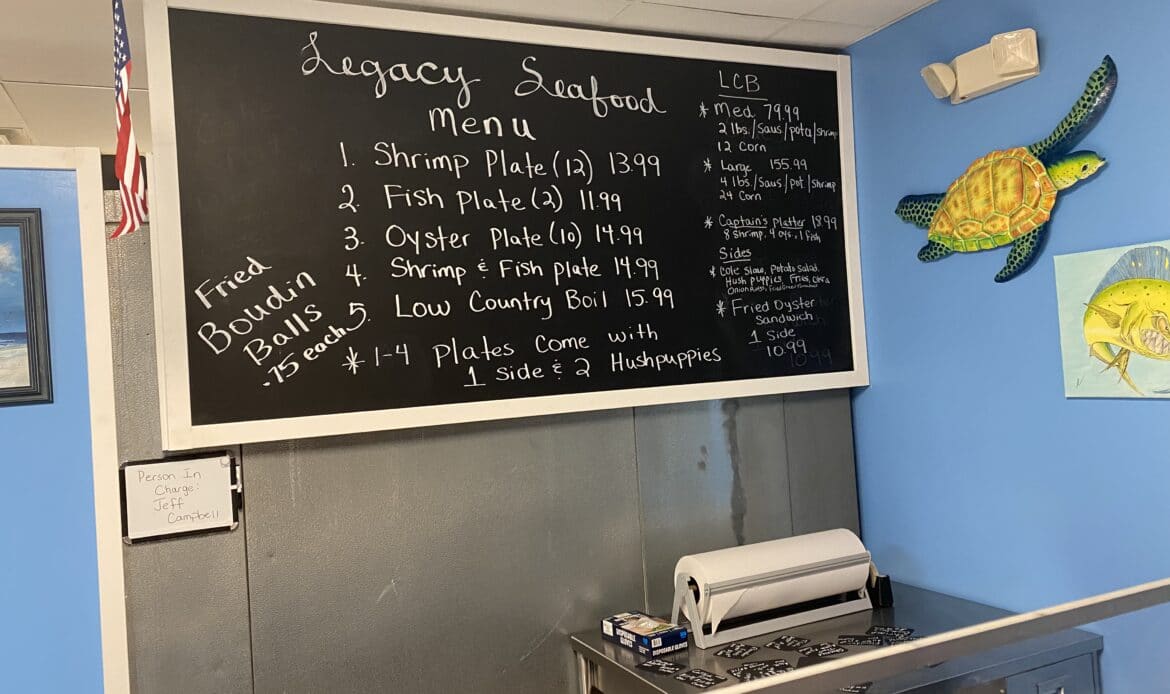 Legacy Seafood
Menu
1. Shrimp Plate (12) 13.99
2. Fish Plate (2) 11.99
3. Oyster Plate (10) 14.99
4. Shrimp & Fish plate 14.99
5. Low Country Boil 15.99
* 1-4 Plates Come with
1 Side & 2 Hushpuppies
Fried
Boudin
Balls
.75 each
LCB
* Med 79.99
2 lbs./Saus/pota/shrimp
12 Corn
* Large 155.99
4 lbs/Saus/pot/shrimp
24 Corn
* Captain's Platter 18.99
8 Shrimp, 4 oys, 1 fish
Sides
* Cole Slaw, Potato Salad,
Hush puppies, Fries, Okra
Onion Rings,
* Fried Oyster
Sandwich
1 Side
10.99
10.99
Person In
Charge:
Jeff
Campbell
DISPOSABLE GLOVES